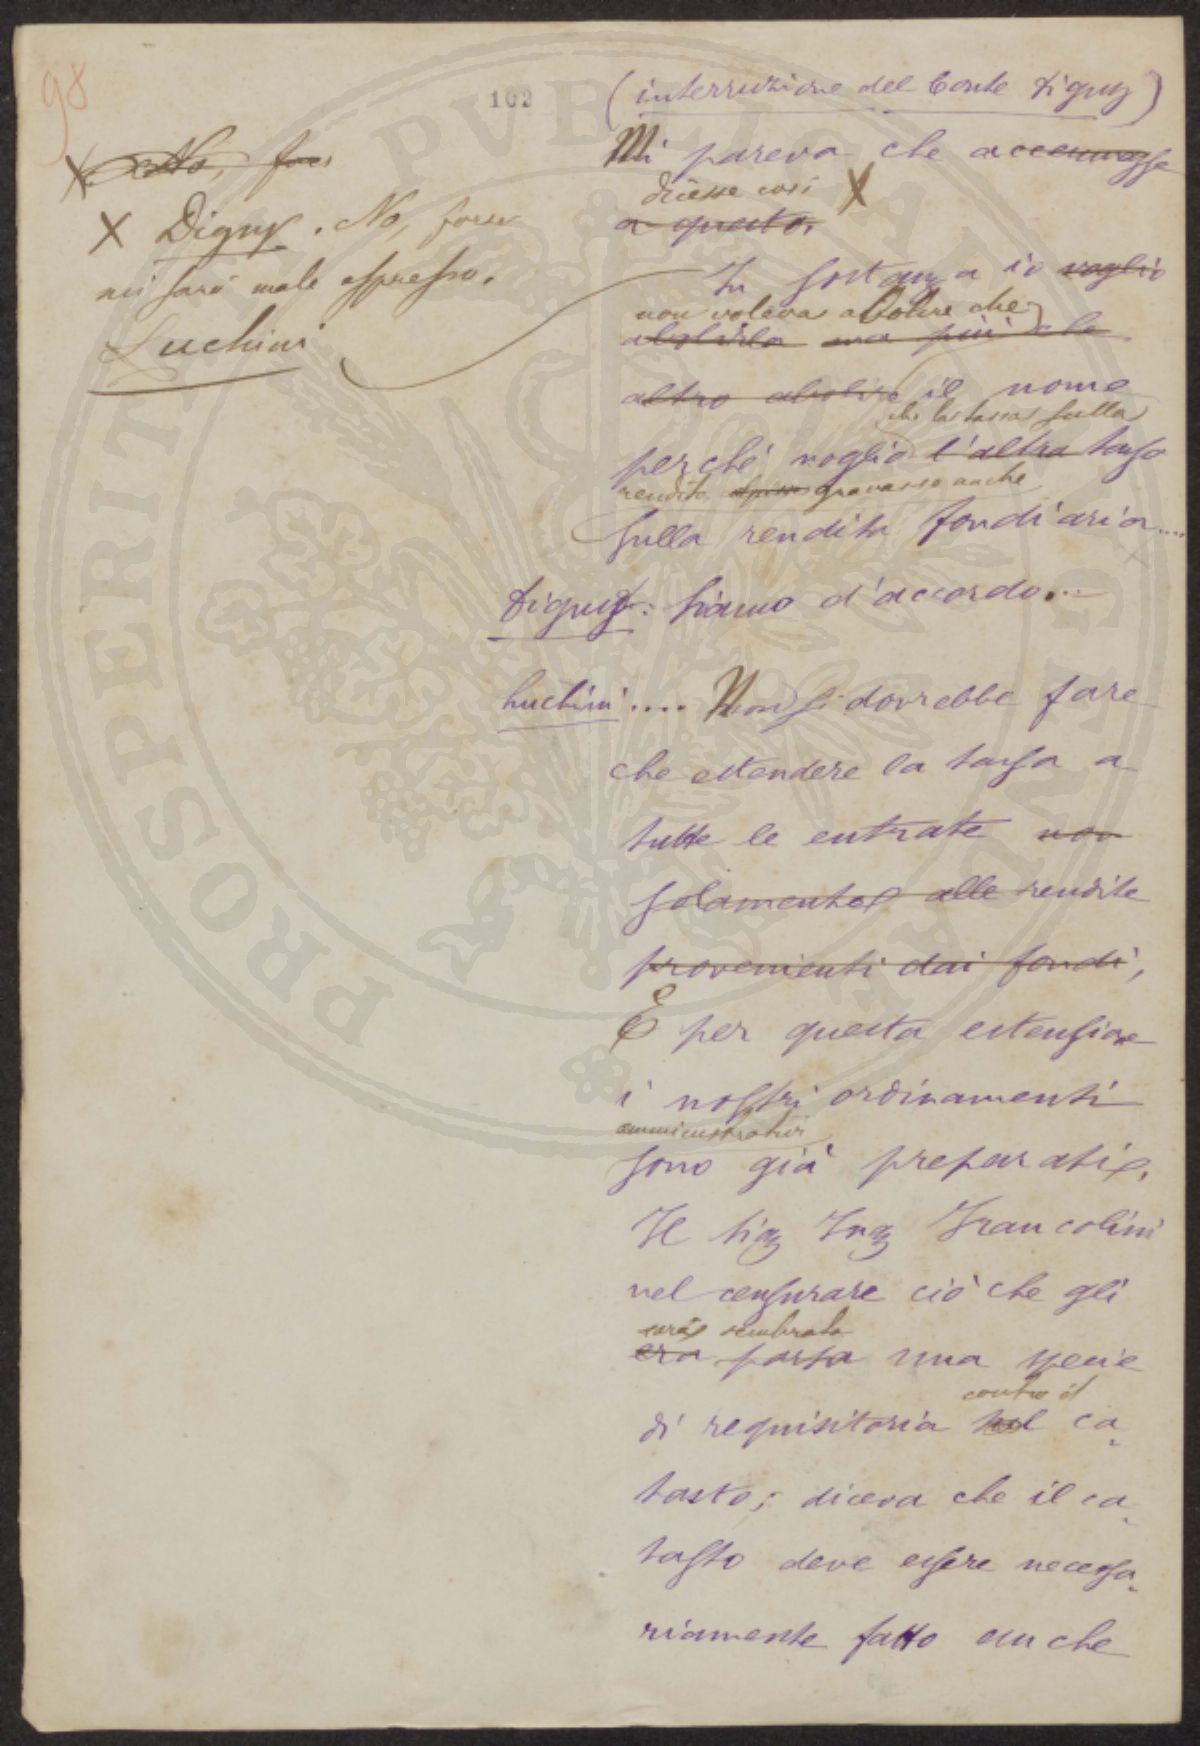 98
102
(interruzione del Conte Digny)
Mi pareva che accennasse
dicesse così X
a questo.
X No, fors
X Digny. No, forse
mi sarò male espresso.
Luchini
In sostanza io voglio
non voleva abolire che
abolirla ma più che
altro abolire il nome
che la tassa sulla
perché voglio l'altra tassa
rendita gravasse anche
sulla rendita fondiaria....
Digny: Siamo d'accordo...
Luchini.... Non si dovrebbe fare
che estendere la tassa a
tutte le entrate non
solamente alle rendite
provenienti dai fondi,
E per questa estensione
i nostri ordinamenti
amministrativi
sono già preparati.
Il Sig Ing Francolini
nel censurare ciò che gli
sarà sembrato
era parsa una specie
contro il
di requisitoria nel ca-
tasto; diceva che il ca-
tasto deve essere necessa-
riamente fatto anche
PVBLICAE
PROSPERITATI